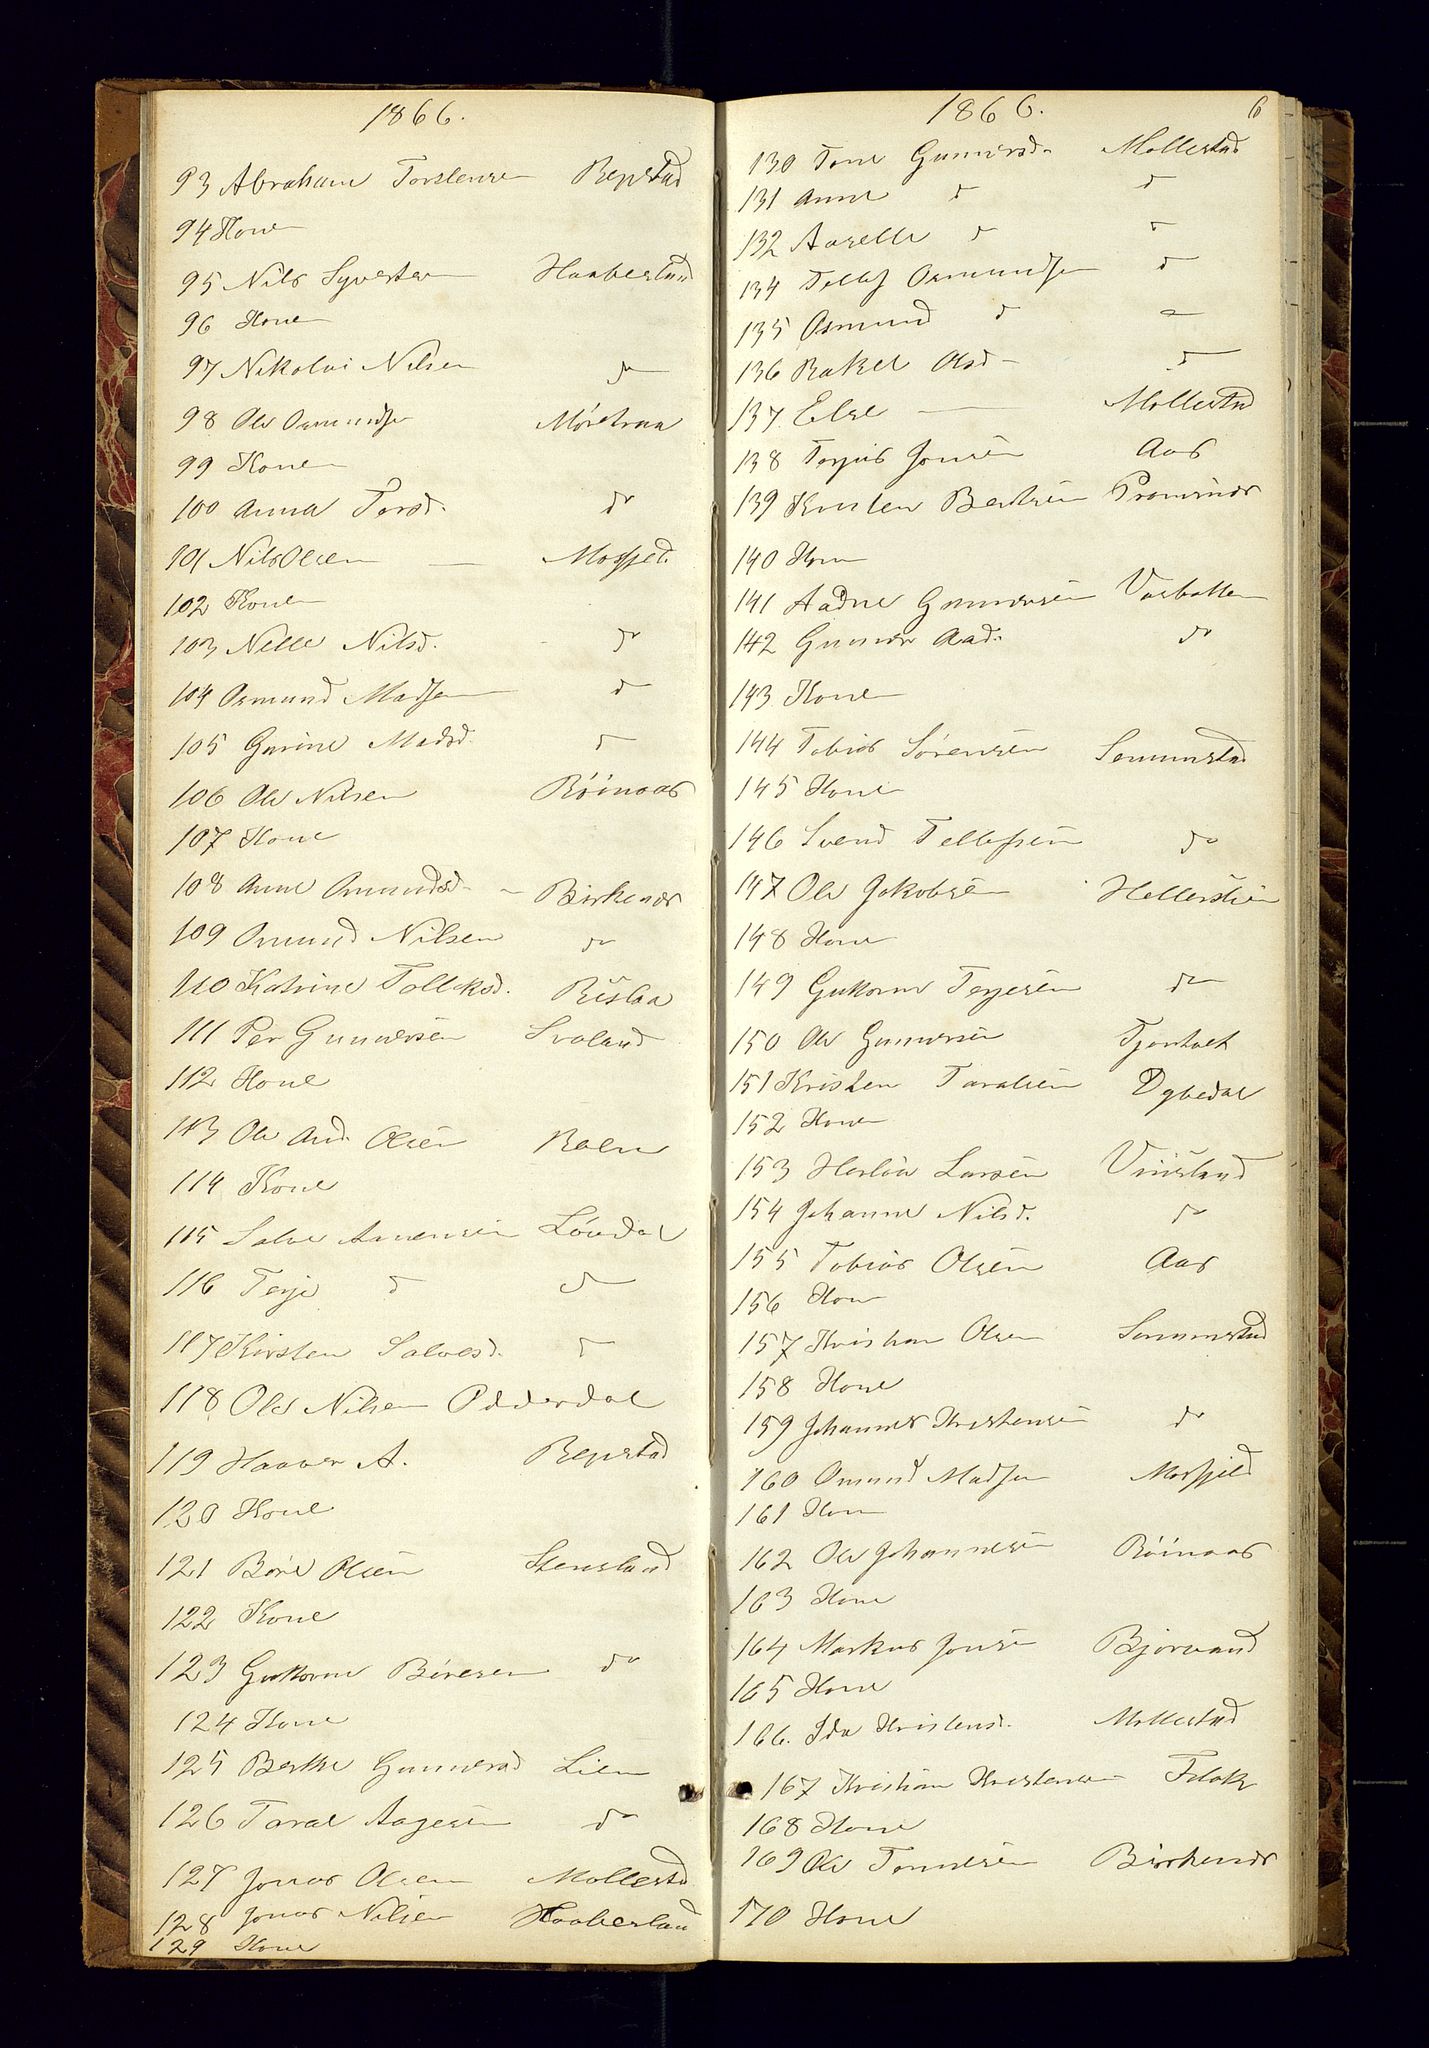 1866.
93 Abraham Torstensen Repstad
94 Kone
95 Nils Syvertsen Haabesland
96 Kone
97 Nikolai Nilsen do
98 Ole Osmundsen Møretraa
99 Kone
100 Anna Torsd. do
101 Nils Olsen — Mosfjeld
102 Kone
103 Nelle Nilsd. do
104 Osmund Madsen d
105 Gurine Madsd. d
106 Ole Nilsen Röinaas
107 Kone
108 Anne Osmundsd. — Birkenæs
109 Osmund Nilsen do
110 Katrine Tellefsd. Risläa
111 Per Gunnersen Svaland
112 Kone
113 Ole And. Olsen Boen
114 Kone
115 Salve Aanensen Løvdal
116 Terje d d
117 Kirsten Salvesd. d
118 Ole Nilsen Odderdal
119 Haaver A. Repstad
120 Kone
121 Børe Olsen Stensland
122 Kone
123 Guttorm Børesen do
124 Kone
125 Berthe Gunnersd Lien
126 Taral Aagesen do
127 Jonas Olsen Mollestd
128 Jonas Nilsen Haabeslan
129 Kone
1866. 6
130 Tone Gunnersd. Mollestad
131 Anne d d
132 Aaselle d d
134 Tellef Osmundsen d
135 Osmund d
136 Rakel Olsd — d
137 Else — Mollestad
138 Terjus Jonsen Aas
139 Kristen Bertsen
140 Kone
141 Aadne Gunnersen Vasbotten
142 Gunner Aad. do
143 Kone
144 Tobias Sørensen Senumstad
145 Kone
146 Svend Tellefsen do
147 Ole Jakobsen Hellerslien
148 Kone
149 Guttorm Terjesen do
150 Ole Gunnersen Tjomholt
151 Kristen Taralsen Dybedal
152 Kone
153 Herlöv Larsen Viirsland
154 Johanne Nilsd. do
155 Tobias Olsen Aas
156 Kone
157 Kristian Olsen Senumstad
158 Kone
159 Johannes Kristensen do
160 Osmund Madsen Mosfjeld
161 Kone
162 Ole Johannesen Röinaas
163 Kone
164 Markus Jonsen Bjorvand
165 Kone
166. Ida Kristensd. Mollestad
167 Kristian Kristensen Flak
168 Kone
169 Ole Tomesen Birkenæs
170 Kone